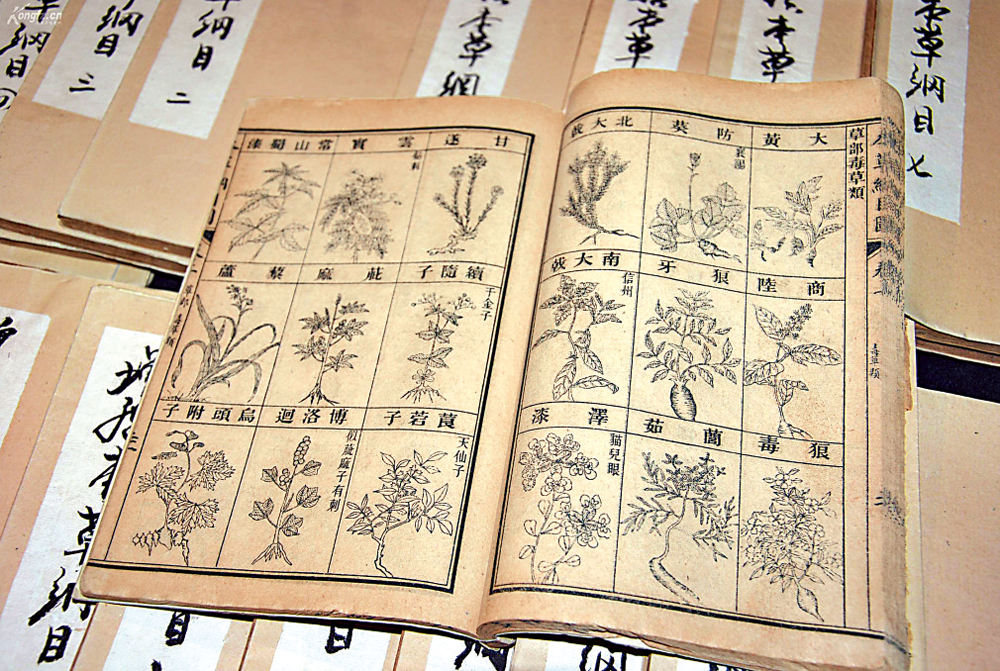 草綱目
綱目 三
綱目 二
本草綱
本草
本草綱目 七
堵居本草綱目
草部毒草類
大黃
防葵
襄陽
北大戟
商陸
狼牙
南大戟
信州
狼毒
蘭茹
澤漆
貓兒眼
毒草類
甘遂
雲實
常山蜀漆
續隨子
千金子
蓖麻
藜蘆
莨菪子
天仙子
博洛迴
似蓖麻子有刺
烏頭附子